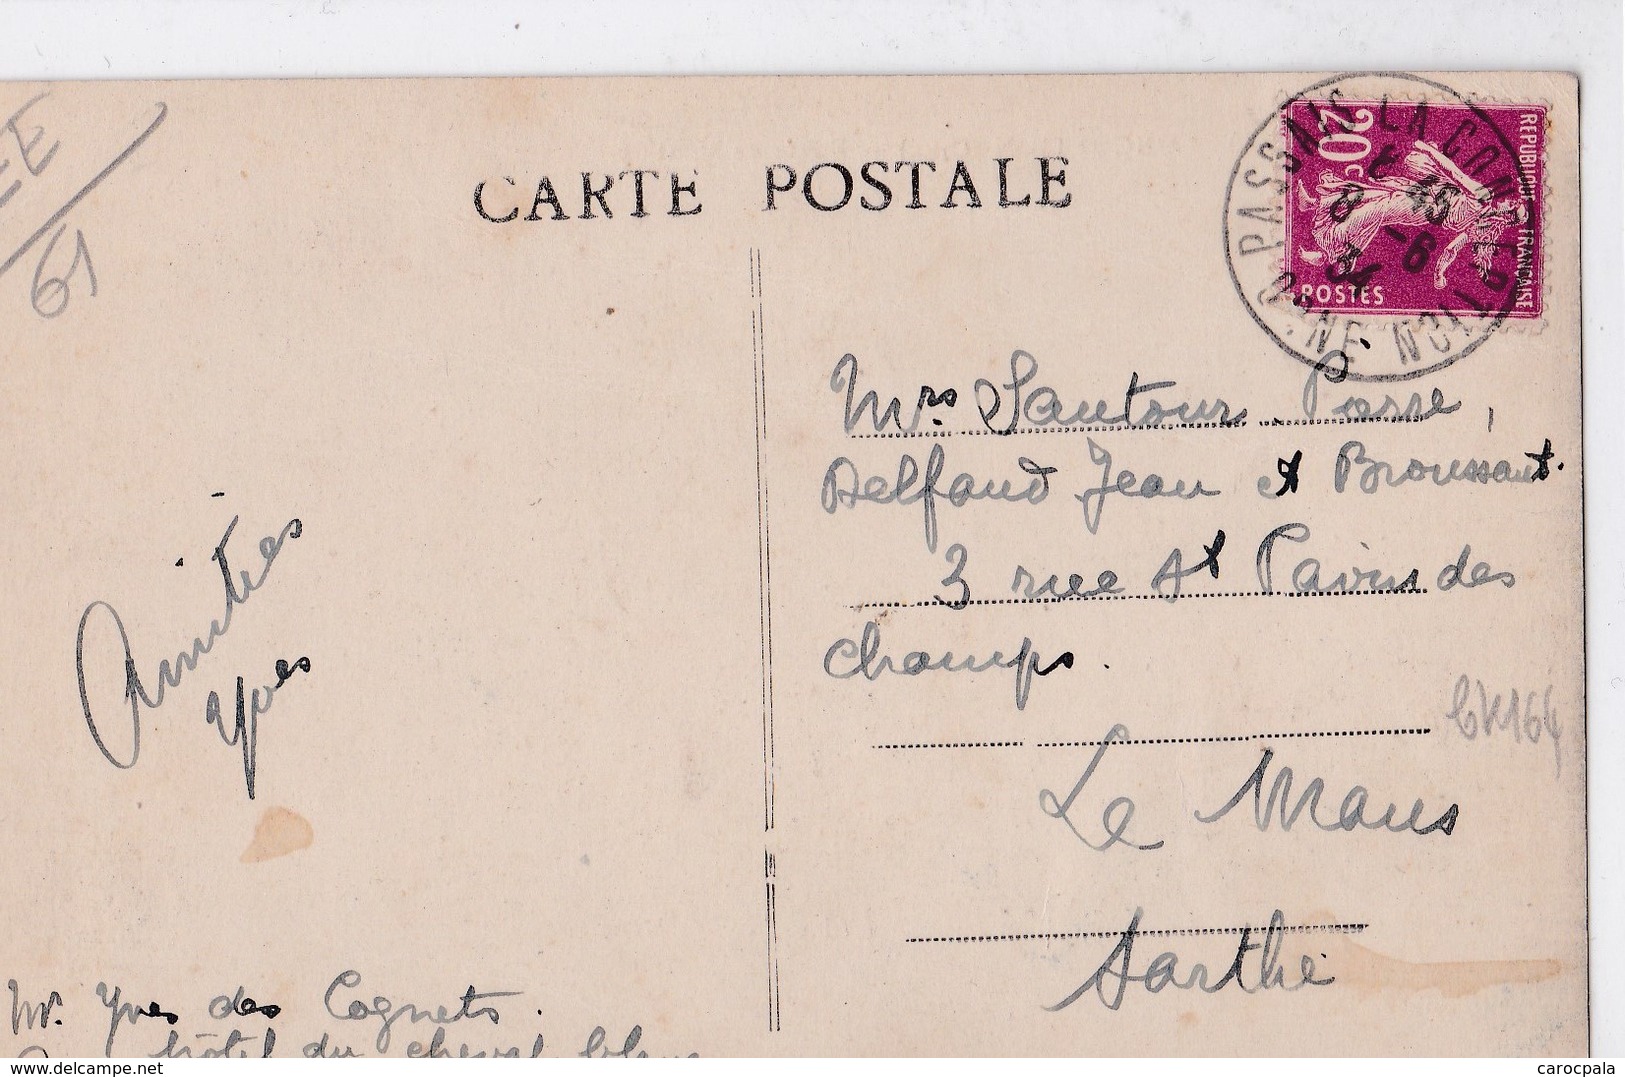 CARTE POSTALE
REPUBLIQUE FRANCAISE
20c
POSTES
PASSAIS LA CONCEPTION
ORNE
45
8 -6
34
61
Mrs Santour. Porre,
Delfaud Jean et Broussaut.
3 rue St Pavin des
champs.
Le Mans
Sarthe
Amitiés
Yves
Mr. Yves des Cognets.
hôtel du cheval blanc
delcampe.net
carocpala